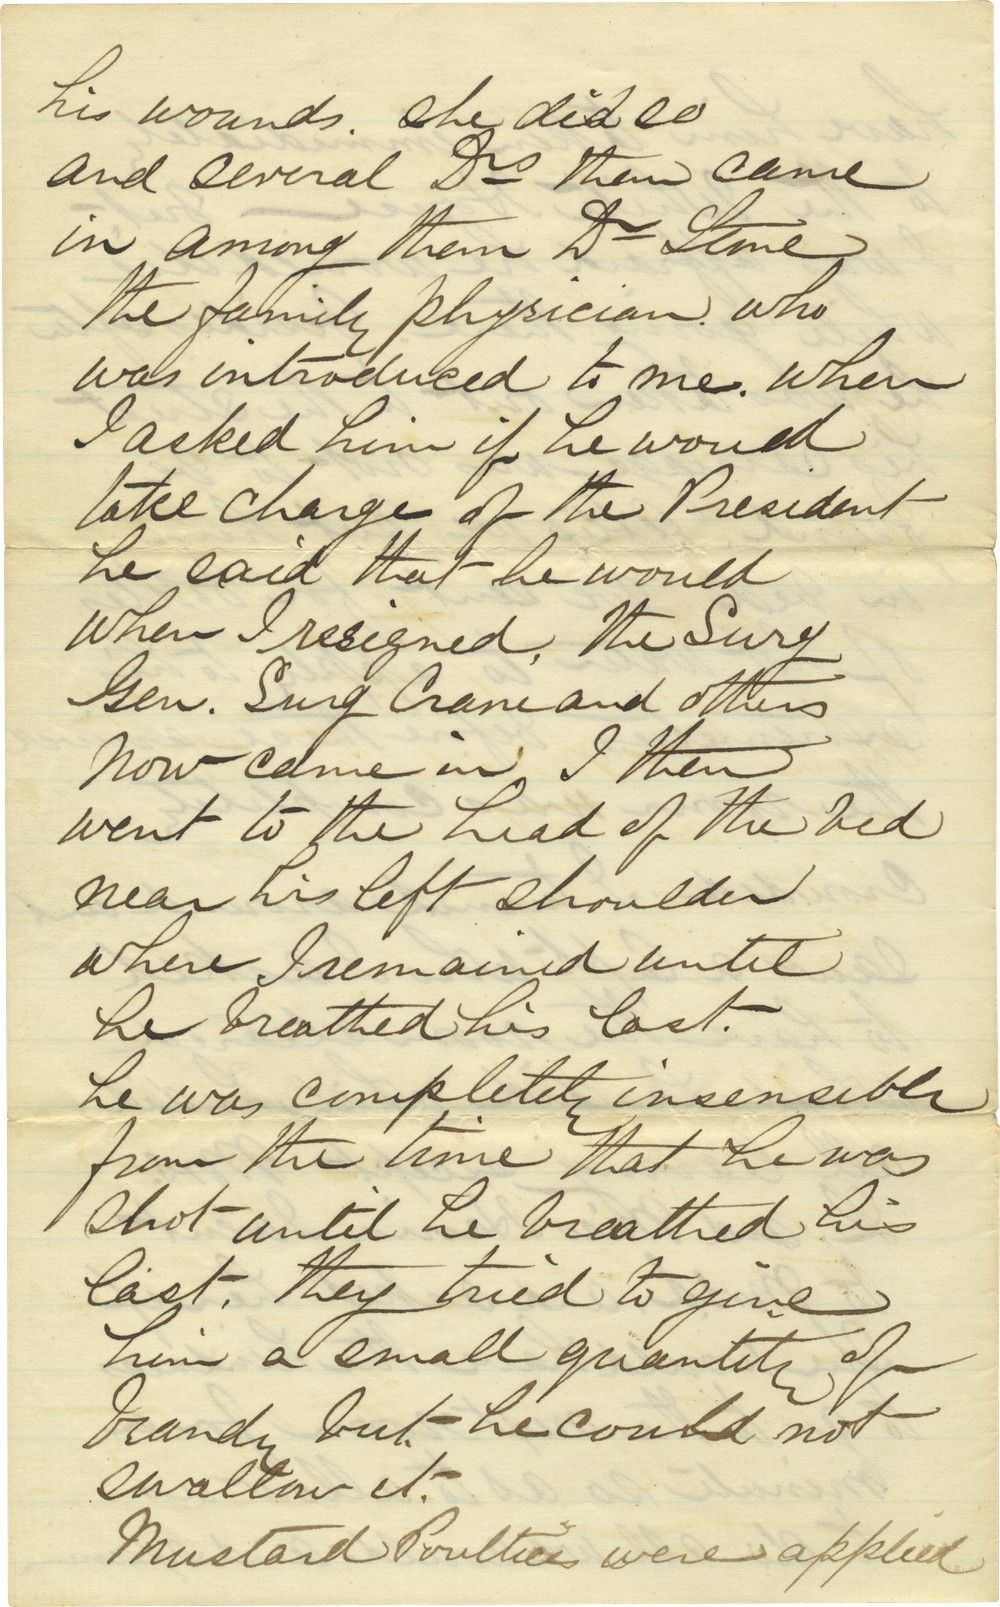 his wounds. she did so
and several Drs then came
in among them Dr Stone
the family physician. who
was introduced to me. when
I asked him if he would
take charge of the President
he said that he would
when I resigned, the Surg
Gen. Surg Crane and others
now came in, I then
went to the head of the bed
near his left shoulder
where I remained until
he breathed his last.
he was completely insensible
from the time that he was
shot until he breathed his
last. they tried to give
him a small quantity of
brandy but he could not
swallow it.
Mustard Poultices were applied